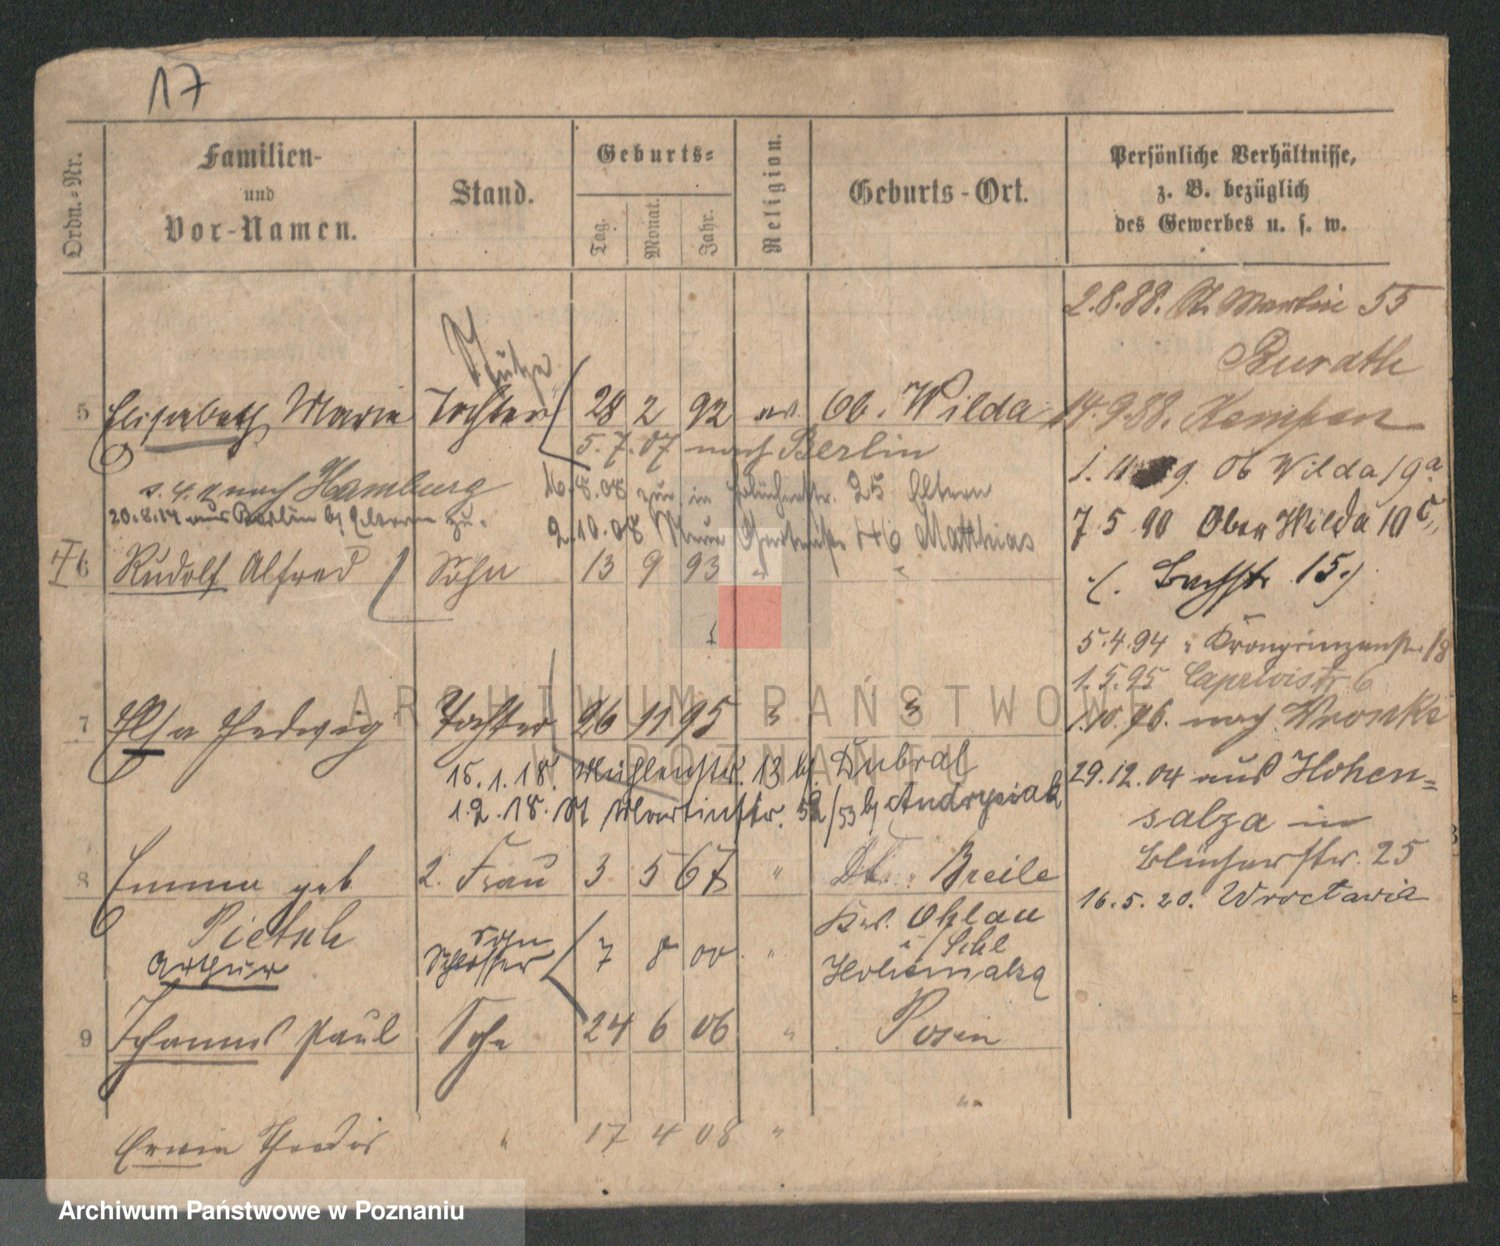 17
Ordn.-Nr.
Familien-
und
Vor-Namen.
Stand.
Geburts-
Tag.
Monat.
Jahr.
Religion.
Geburts-Ort.
Persönliche Verhältnisse,
z. B. bezüglich
des Gewerbes u. s. w.
2.8.88. St Martin 55
5 Elisabeth Marie Tochter 28 2 92 ev. Ob. Wilda
14.9.88. Kempen
5.7.07 nach Berlin
nach Hamburg
16.8.08 in Blücherstr. 25 Eltern
1.11 9. Ob Wilda 19a
20.8.14 aus Berlin bei Eltern zu.
2.10.08 Neue Gartenstr 46 Matthias
7.5.90 Ober Wilda 10c
6 Rudolf Alfred Sohn 13 9 93 " "
(. Bachstr. 15.)
5.4.94 " Kronprinzenstr. 18
1.5.95 Caprivistr 6
7 Elsa Hedwig Tochter 26 11 95
1.10.96. nach Wronke
15.1.18. Mühlenstr. 13 b. Kubral
29.12.04 aus Hohen=
1.2.18. St Martinstr. 52/53 b. Andrysiak
salza in
Blücherstr. 25
8 Emma geb 2. Frau 3 5 67 " Breile
16.5.20. Wrocławia
Pietsch
Kr. Ohlau
Arthur
Sohn
Schlosser
7 8 00 "
i/Schl
Hohensalza
9 Johannes Paul Sohn 24 6 06 " Posen
"
Erwin " 17 4 08 "
ARCHIWUM PAŃSTWOWE
W POZNANIU
Archiwum Państwowe w Poznaniu